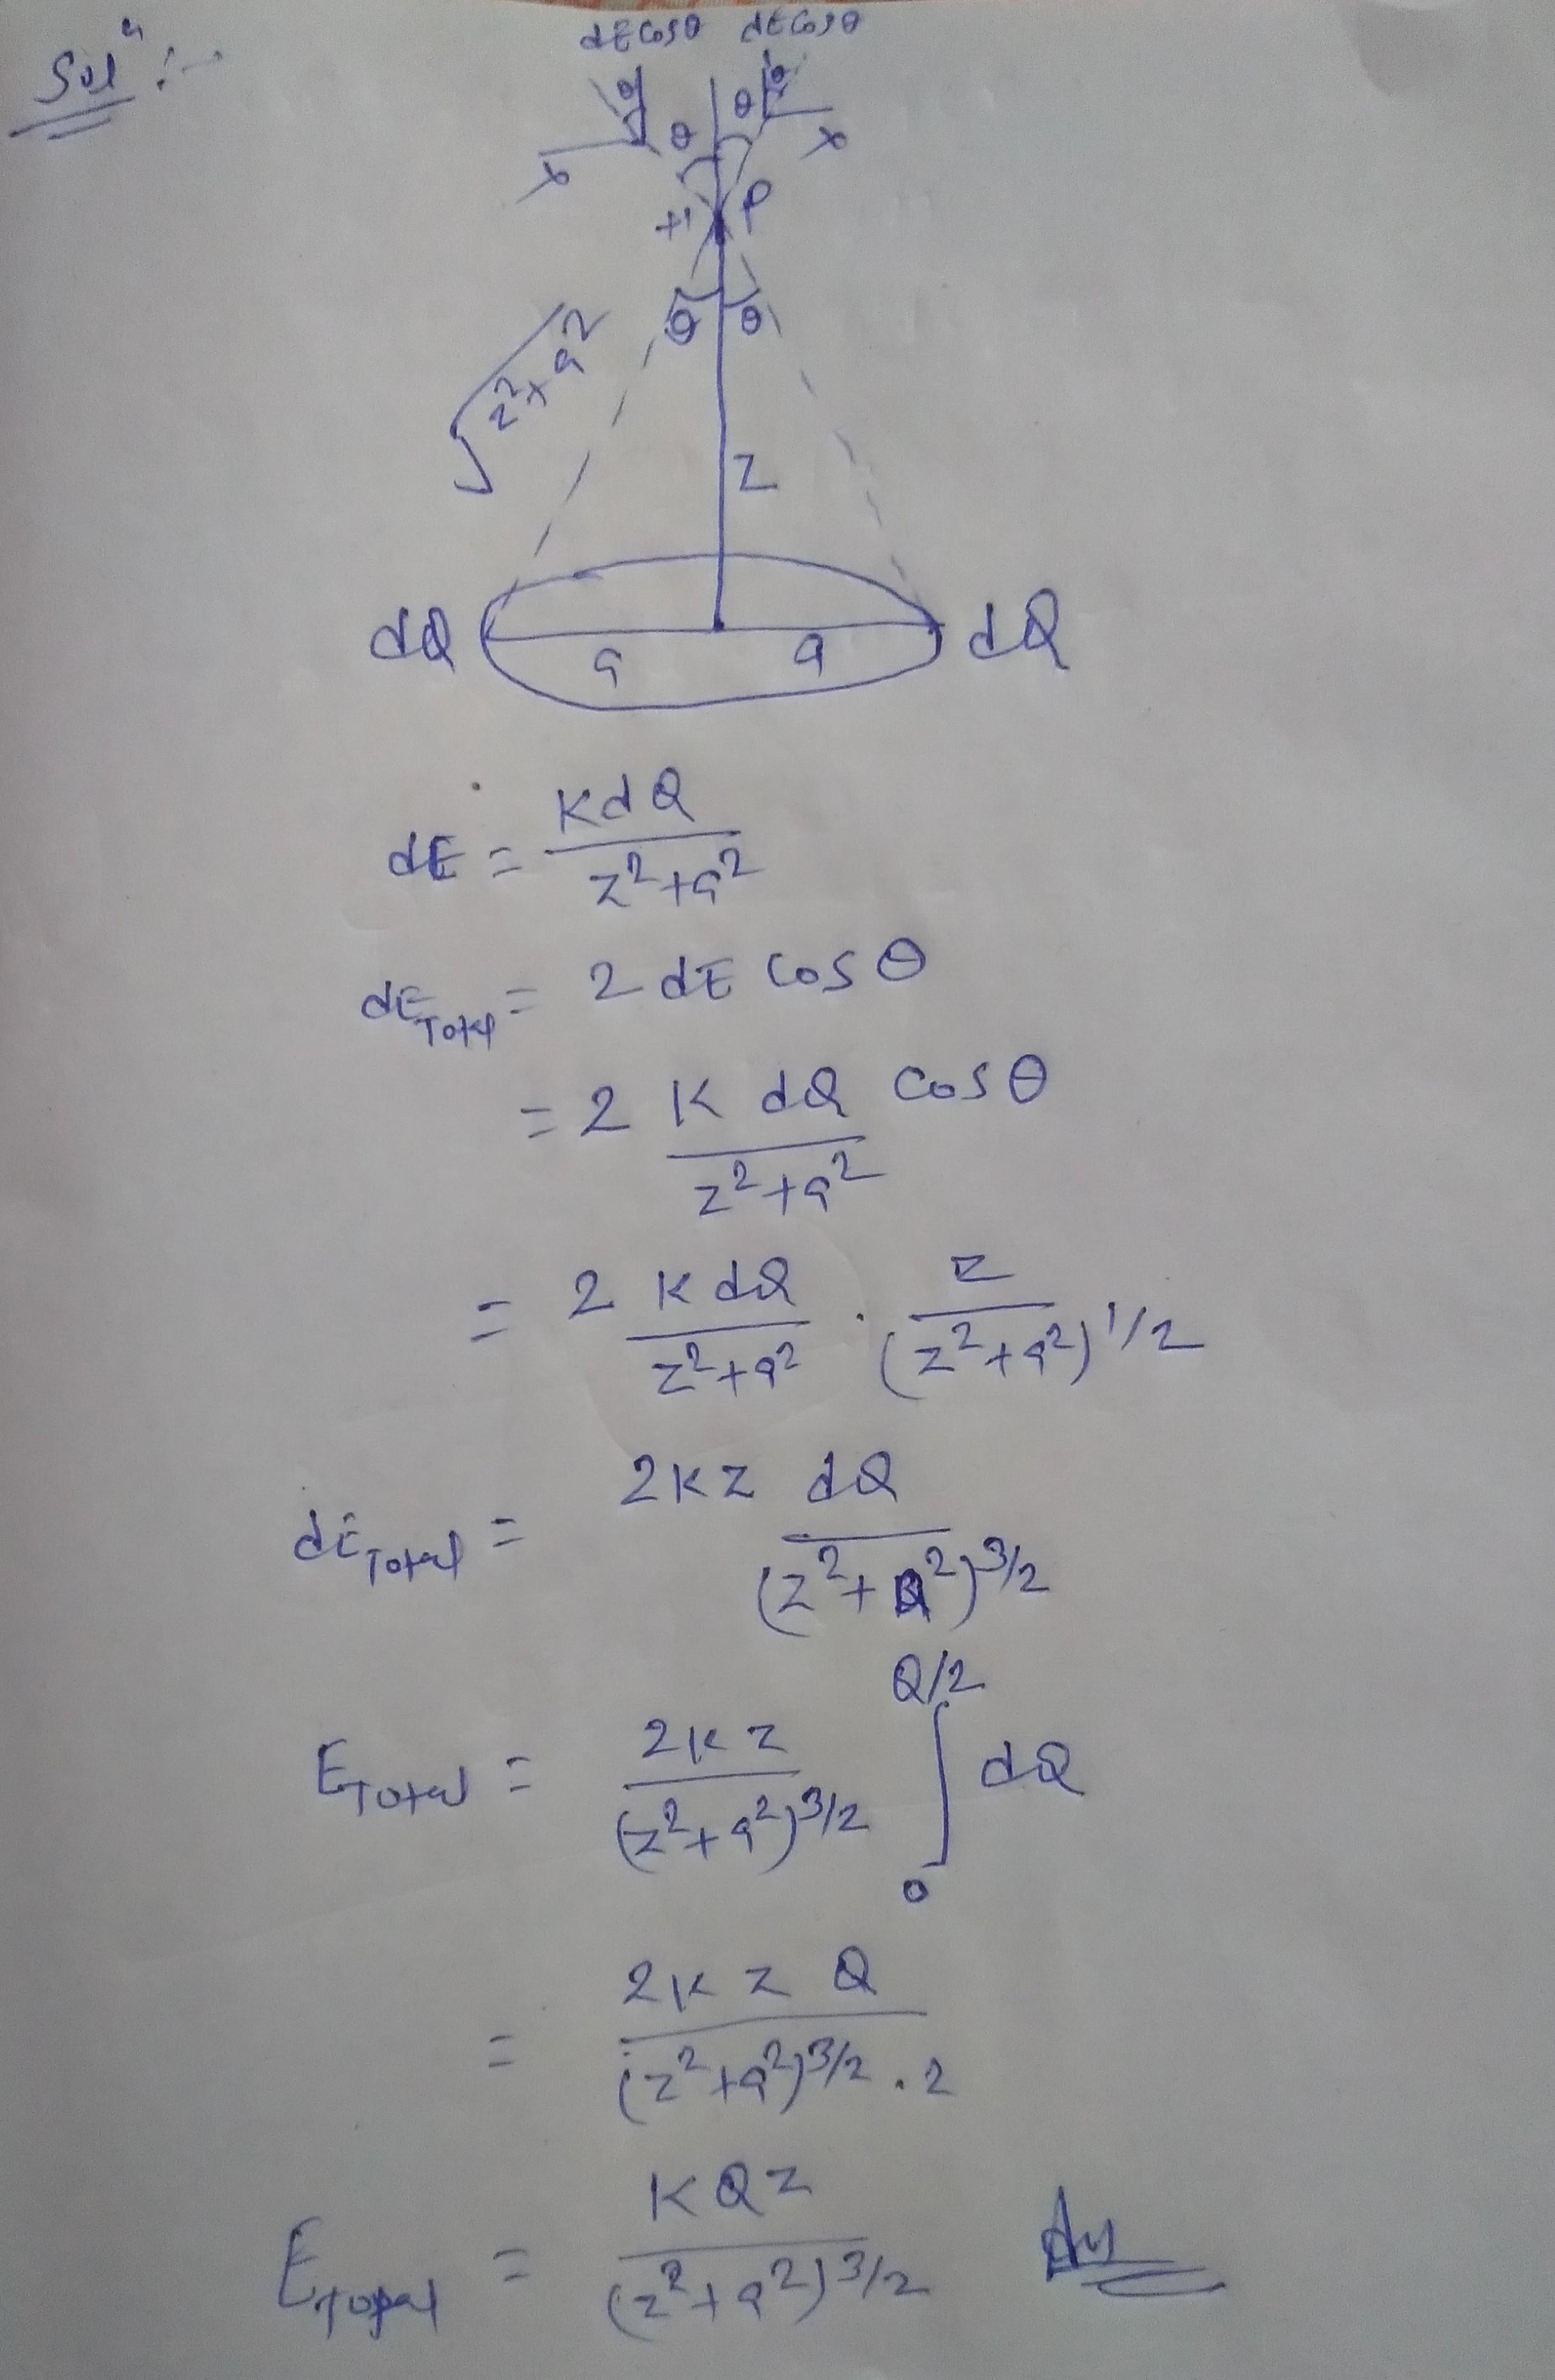 Solⁿ :-
dE cosθ dE cosθ
θ θ
θ θ
x x
+1 P
θ θ
√z²+a²
z
dQ a a dQ
dE = KdQ / z²+a²
dE_Total = 2 dE cosθ
= 2 K dQ / z²+a² cosθ
= 2 K dQ / z²+a² · z / (z²+a²)^1/2
dE_Total = 2Kz dQ / (z²+a²)^3/2
E_Total = 2Kz / (z²+a²)^3/2 ∫₀^Q/2 dQ
= 2K z Q / (z²+a²)^3/2 . 2
E_Total = KQz / (z²+a²)^3/2 Ans